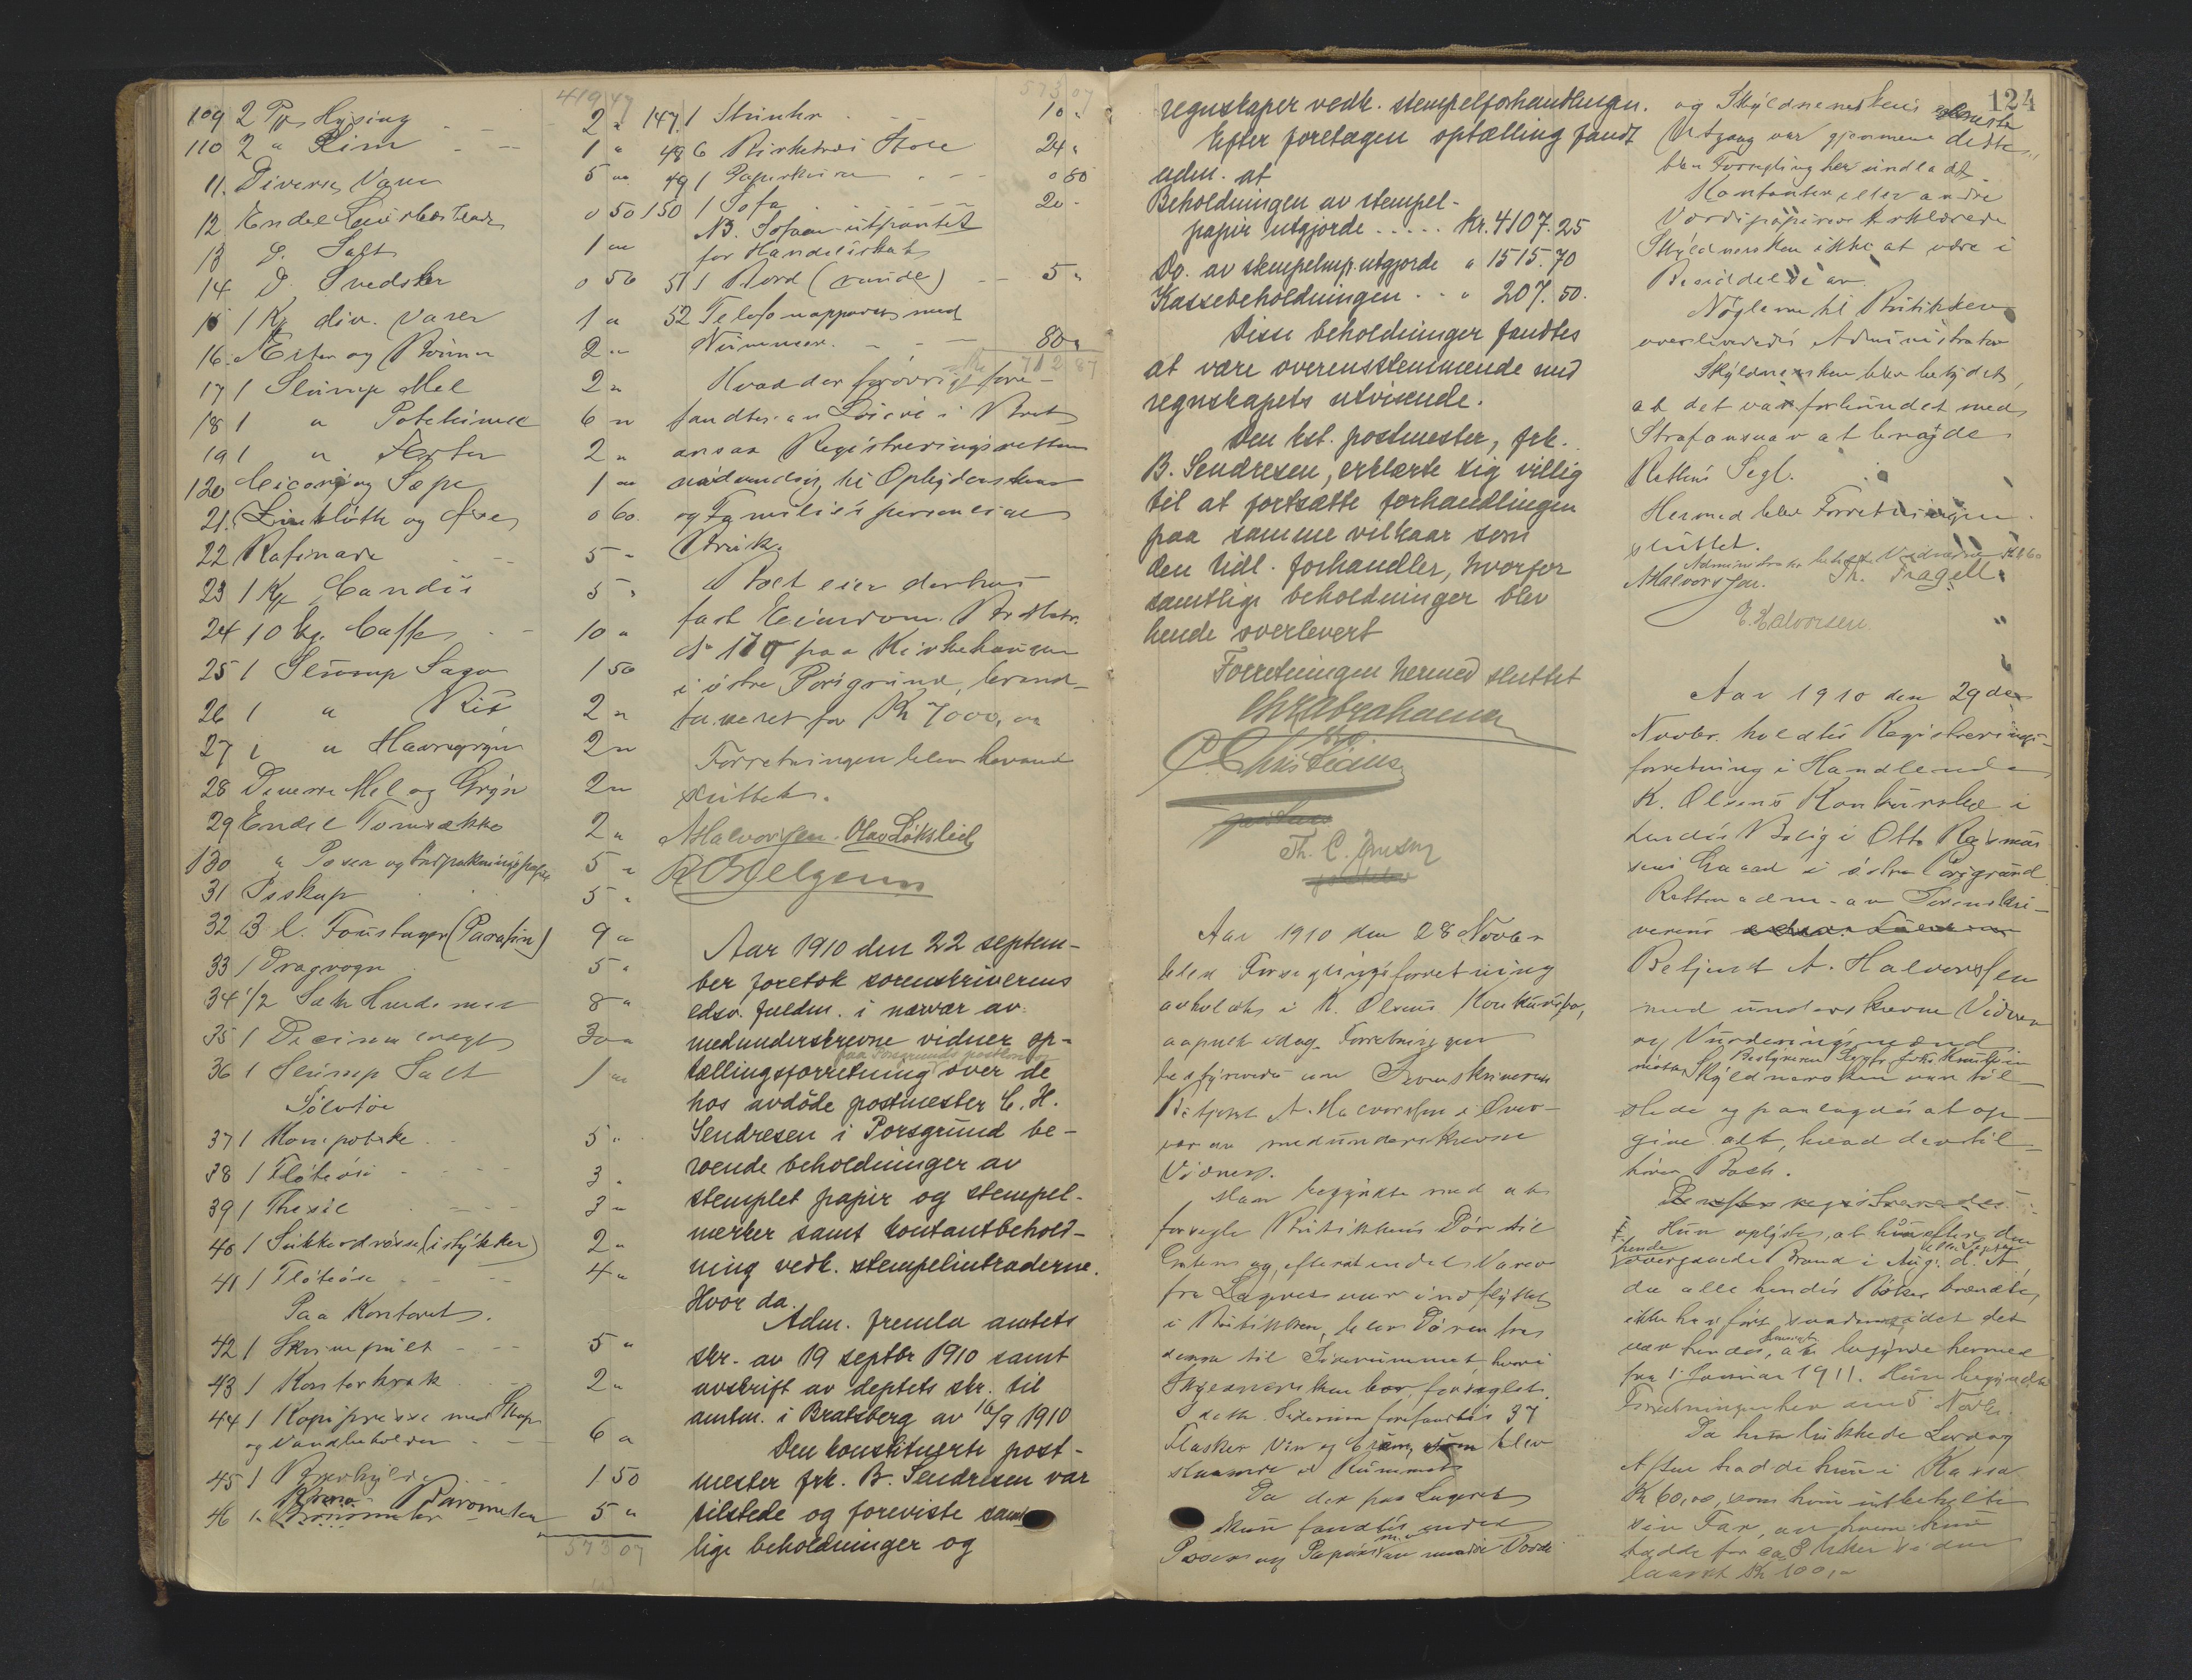 419 47
109 2 Pk Hysing 2 "
110 2 " Lim 1 "
11. Diverse Varer 5 "
12 Endel 0 50
13 D. Salt 1 "
14 D. Svedsker 0 50
15 1 Kg div. varer 1 "
16. Erter og Bönner 2 "
17 1 Slump Mel 2 "
18 1 " Potetmel 6 "
19 1 " Erter 2 "
120 Cicori og Sæpe 1 "
21. og 0 60
22 Rafinade 5 "
23 1 Kg Candis 5 "
24 10 kg. Caffe 10 "
25 1 Slump Sago 1 50
26 1 " Ris 2 "
27 1 " Havregryn 2 "
28 Diverse Mel og Gryn 2 "
29 Endel Tomsække 2 "
130 " Poser og Indpakningspapir 5 "
31 Isskap 5 "
32 3 l. (Parafin) 9 "
33 1 Dragvogn 5 "
34 1/2 Sæk 8 "
35 1 Decimalvægt 30 "
36 1 Slump Salt 1 "
Sölvtöi
37 1 5 "
38 1 Flöteösé 3 "
39 1 Theske 3 "
40 1 (i stykker) 2 "
41 1 Flöteöse 4 "
Paa Kontoret.
42 1 Skrivepult 5 "
43 1 Kontorkrak 2 "
44 1 Kopipresse med Skap
og Vandbeholder 6 "
45 1 1 50
46 1 Barometer 5 "
573 07
573 07
147. 1 10 "
48 6 Birketræs Stole 24 "
49 1 Papirkurv 0 80
150 1 Sofa 20 -
NB. Sofaen utpantet
for Handelsskat
51 1 Bord (runde) 5 "
52 Telefonapparat med
Nummer 80 "
712 87
Hvad der forövrigt fore-
fandtes av Lösöre i Boet
ansaa Registreringsretten
nödvendig til
og Families personlige
Bruk.
Boet eier desuden
fast Eiendom.
No 170 paa Kirkehaugen
i östre Porsgrund, brand-
taxeret for Kr 7000,00
Forretningen blev hermed
sluttet.
AHalvorsen. Olav Lökslid
Aar 1910 den 22 septem-
ber foretok sorenskriverens
edsv. fuldm. i nærvær av
medunderskrevne vidner op-
paa Porsgrunds postkontor
tællingsforretning over de
hos avdöde postmester C. H.
Sendresen i Porsgrund be-
roende beholdninger av
stemplet papir og stempel-
merker samt kontantbehold-
ning vedk. stempelintraderne.
Hvor da.
Adm. fremla amtets
skr. av 19 septbr 1910 samt
avskrift av deptets skr. til
amtm. i Bratsberg av 16/9 1910
Den konstituerte post-
mester frk. B. Sendresen var
tilstede og foreviste samt
lige beholdninger og
124
regnskaper vedk. stempelforhandlingen.
Efter foretagen optælling fandt
adm. at
Beholdningen av stempel-
papir utgjorde ..... kr. 4107.25
Do. av stempelmp. utgjorde " 1515.70
Kassebeholdningen .. " 207.50.
Disse beholdninger fandtes
at være overensstemmende med
regnskapets utvisende.
Den kst. postmester, frk.
B. Sendresen, erklærte sig villig
til at fortsætte forhandlingen
paa samme vilkaar som
den tidl. forhandler, hvorfor
samtlige beholdninger blev
hende overlevert
Forretningen hermed sluttet
Abrahamsen
Christians
Th. C. Jensen
Aar 1910 den 28 Novbr
blev Forseglingsforretning
avholdt i K. Olsens Konkursbo,
aapnet idag. Forretningen
bestyredes av Sorenskriverens
Betjent A. Halvorsen i Over-
vær av medunderskrevne
Vidner.
Man begyndte med at
forsegle Butikkens Dör til
Gaten og, efterat endel Varer
fra Lageret var indflyttet
i Butikken, blev Dören fra
denne til Siderummet, hvori
Skyldnersken bor, forseglet.
I dette Siderum forefandtes 37
Flasker Vin og som blev
staaende i Rummet
Da der paa Lageret
kun fandtes endel
Poser og Papir
og Skyldnerskens eneste
Utgang var gjennem dette
blev Forsegling her undladt.
Kontanter eller andre
Værdipapirer erklærede
Skyldnersken ikke at være i
Besiddelse av.
Nöglerne til Butikken
overleveredes Administrator
Skyldnersken blev betydet,
at det var forbundet med
Strafansvar at beröre
Rettens Segl.
Hermed blev Forretningen
sluttet.
AHalvorsen. Th. Fragell
E. Halvorsen
Aar 1910 den 29de
Novbr. holdtes Registrerings-
forretning i Handlende
K. Olsens Konkursbo i
hendes Bolig i Otto Rasmus-
sens Gaard i östre Porsgrund.
Retten adm. av Sorenskri-
verens
Betjent A. Halvorsen
med underskrevne Vidner
og Vurderingsmænd.
mötte Skyldnersken var til-
stede og paalagdes at op-
give alt, hvad der til-
hörer Boet.
Derefter registreredes
Hun oplyste, at hun efter den
hende
overgaaede Brand i Aug. d. A
da alle hendes Böker brændte,
ikke har fört saadanne idet det
var hendes, at begynde hermed
fra 1 Januar 1911. Hun begyndte
Forretningen her den 5 Novbr.
Da hun lukkede Lördag
Aften hadde hun i Kassa
Kr 60,00, som hun utbetalte
sin Far, av hvem hun
hadde for ca 8 Uker siden
laant Kr 100,-